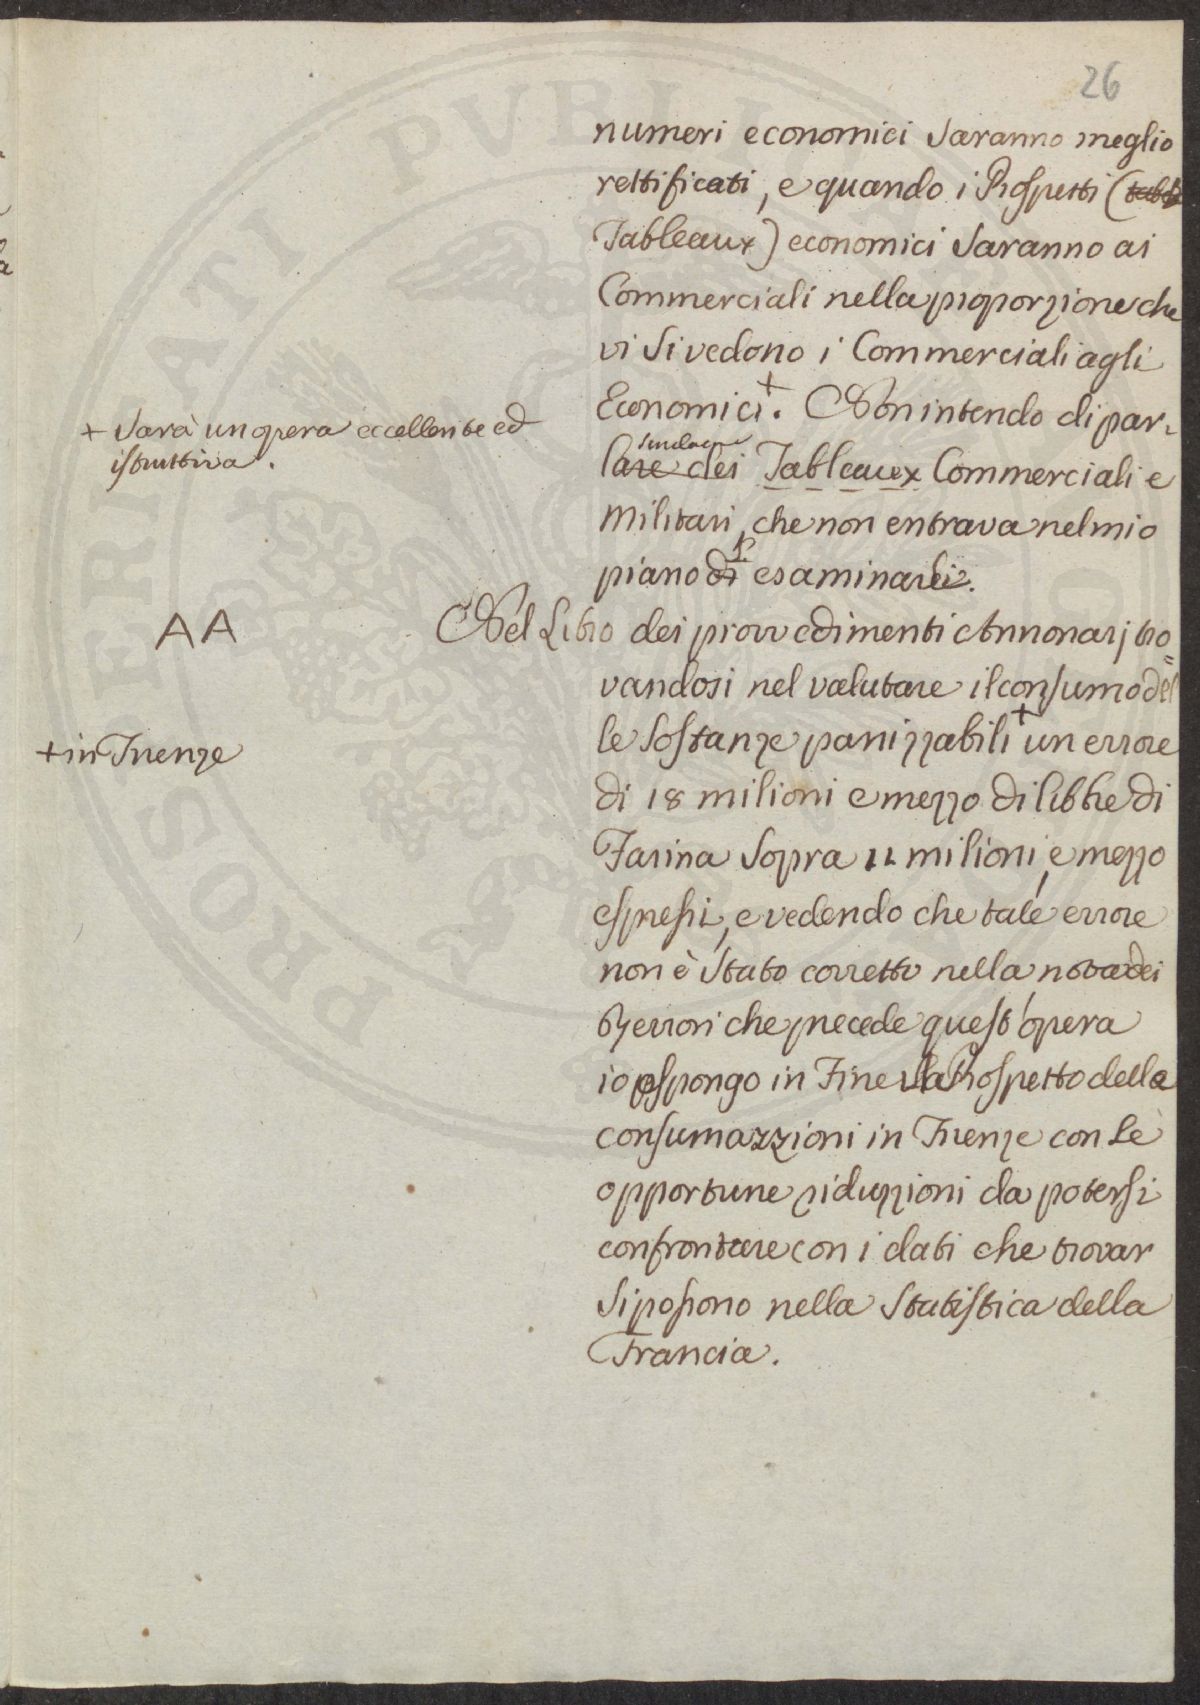 26
numeri economici saranno meglio
rettificati, e quando i Prospetti (
Tableaux) economici saranno ai
Commerciali nella proporzione che
vi si vedono i Commerciali agli
Economici+. Non intendo di par-
lare dei Tableaux Commerciali e
militari, che non entrava nel mio
piano di esaminarli.
+ sarà un opera eccellente ed
istruttiva.
AA
Nel Libro dei provvedimenti Annonarj tro=
vandosi nel valutare il consumo del
le sostanze panizzabili + un errore
+ in Firenze
di 18 milioni e mezzo di libbre di
Farina sopra 11 milioni, e mezzo
espressi, e vedendo che tale errore
non è stato corretto nella nota dei
errori che precede quest'opera
io espongo in Fine Prospetto della
consumazzioni in Firenze con le
opportune riduzzioni da potersi
confrontare con i dati che trovar
si possono nella Statistica della
Francia.
PROSPERITATI PVBLICAE